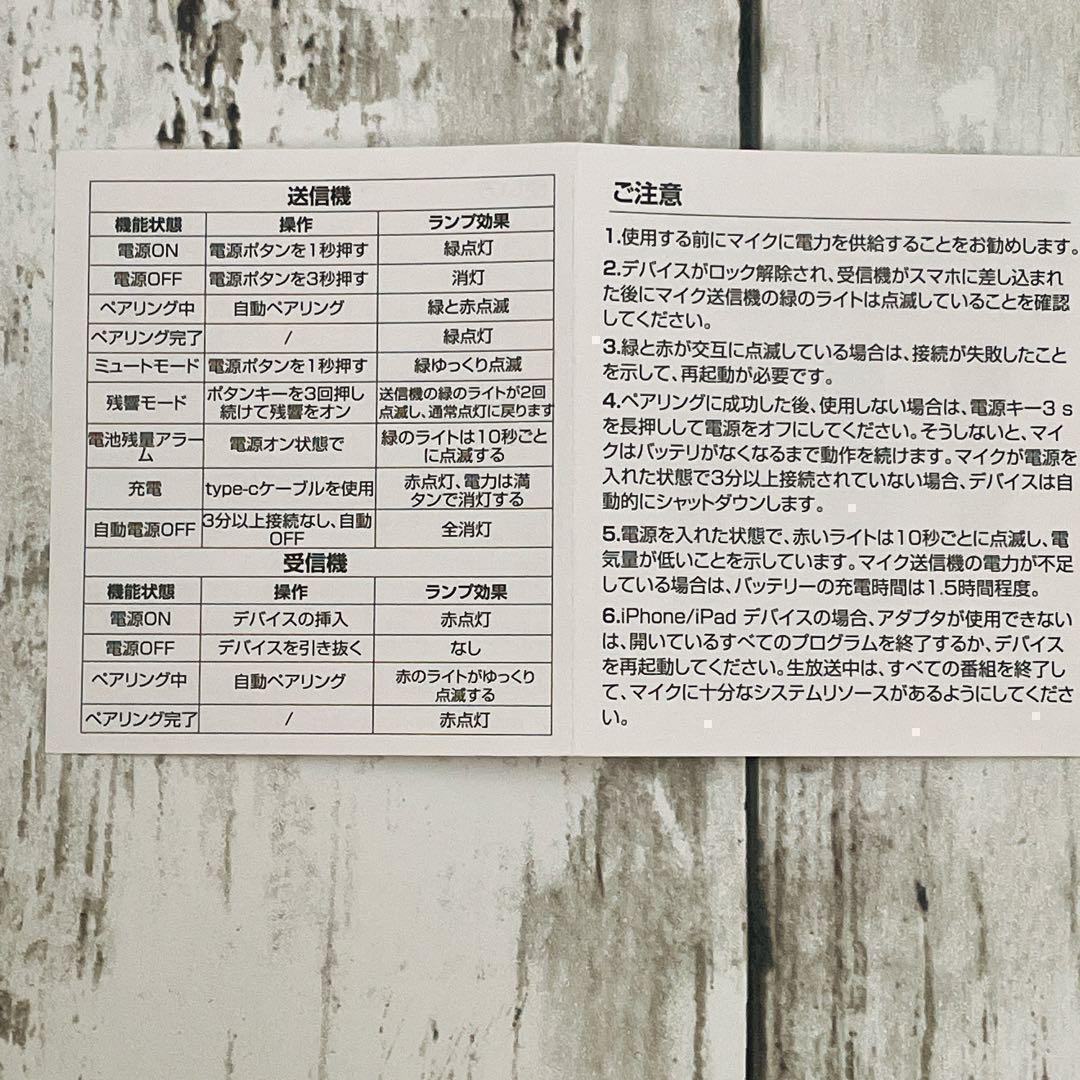 送信機
機能状態 操作 ランプ効果
電源ON 電源ボタンを1秒押す 緑点灯
電源OFF 電源ボタンを3秒押す 消灯
ペアリング中 自動ペアリング 緑と赤点滅
ペアリング完了 / 緑点灯
ミュートモード 電源ボタンを1秒押す 緑ゆっくり点滅
残響モード ボタンキーを3回押し 送信機の緑のライトが2回
続けて残響をオン 点滅し、通常点灯に戻ります
電池残量アラー 電源オン状態で 緑のライトは10秒ごと
ム に点滅する
充電 type-cケーブルを使用 赤点灯、電力は満
タンで消灯する
自動電源OFF 3分以上接続なし、自動 全消灯
OFF
受信機
機能状態 操作 ランプ効果
電源ON デバイスの挿入 赤点灯
電源OFF デバイスを引き抜く なし
ペアリング中 自動ペアリング 赤のライトがゆっくり
点滅する
ペアリング完了 / 赤点灯
ご注意
1.使用する前にマイクに電力を供給することをお勧めします。
2.デバイスがロック解除され、受信機がスマホに差し込まれ
た後にマイク送信機の緑のライトは点滅していることを確認
してください。
3.緑と赤が交互に点滅している場合は、接続が失敗したこと
を示して、再起動が必要です。
4.ペアリングに成功した後、使用しない場合は、電源キー3 s
を長押しして電源をオフにしてください。そうしないと、マイ
クはバッテリがなくなるまで動作を続けます。マイクが電源を
入れた状態で3分以上接続されていない場合、デバイスは自
動的にシャットダウンします。
5.電源を入れた状態で、赤いライトは10秒ごとに点滅し、電
気量が低いことを示しています。マイク送信機の電力が不足
している場合は、バッテリーの充電時間は1.5時間程度。
6.iPhone/iPad デバイスの場合、アダプタが使用できない
は、開いているすべてのプログラムを終了するか、デバイス
を再起動してください。生放送中は、すべての番組を終了し
て、マイクに十分なシステムリソースがあるようにしてくださ
い。